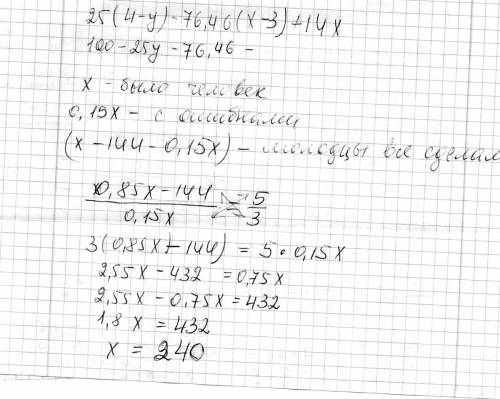 25(4-y)-76,46(x-3)+14x
100-25y-76,46-
x - было человек
0,15x - с ошибками
(x-144-0,15x) - молодцы все сделали
0,85x-144 / 0,15x = 5/3
3(0,85x-144) = 5·0,15x
2,55x-432 = 0,75x
2,55x-0,75x=432
1,8x = 432
x = 240